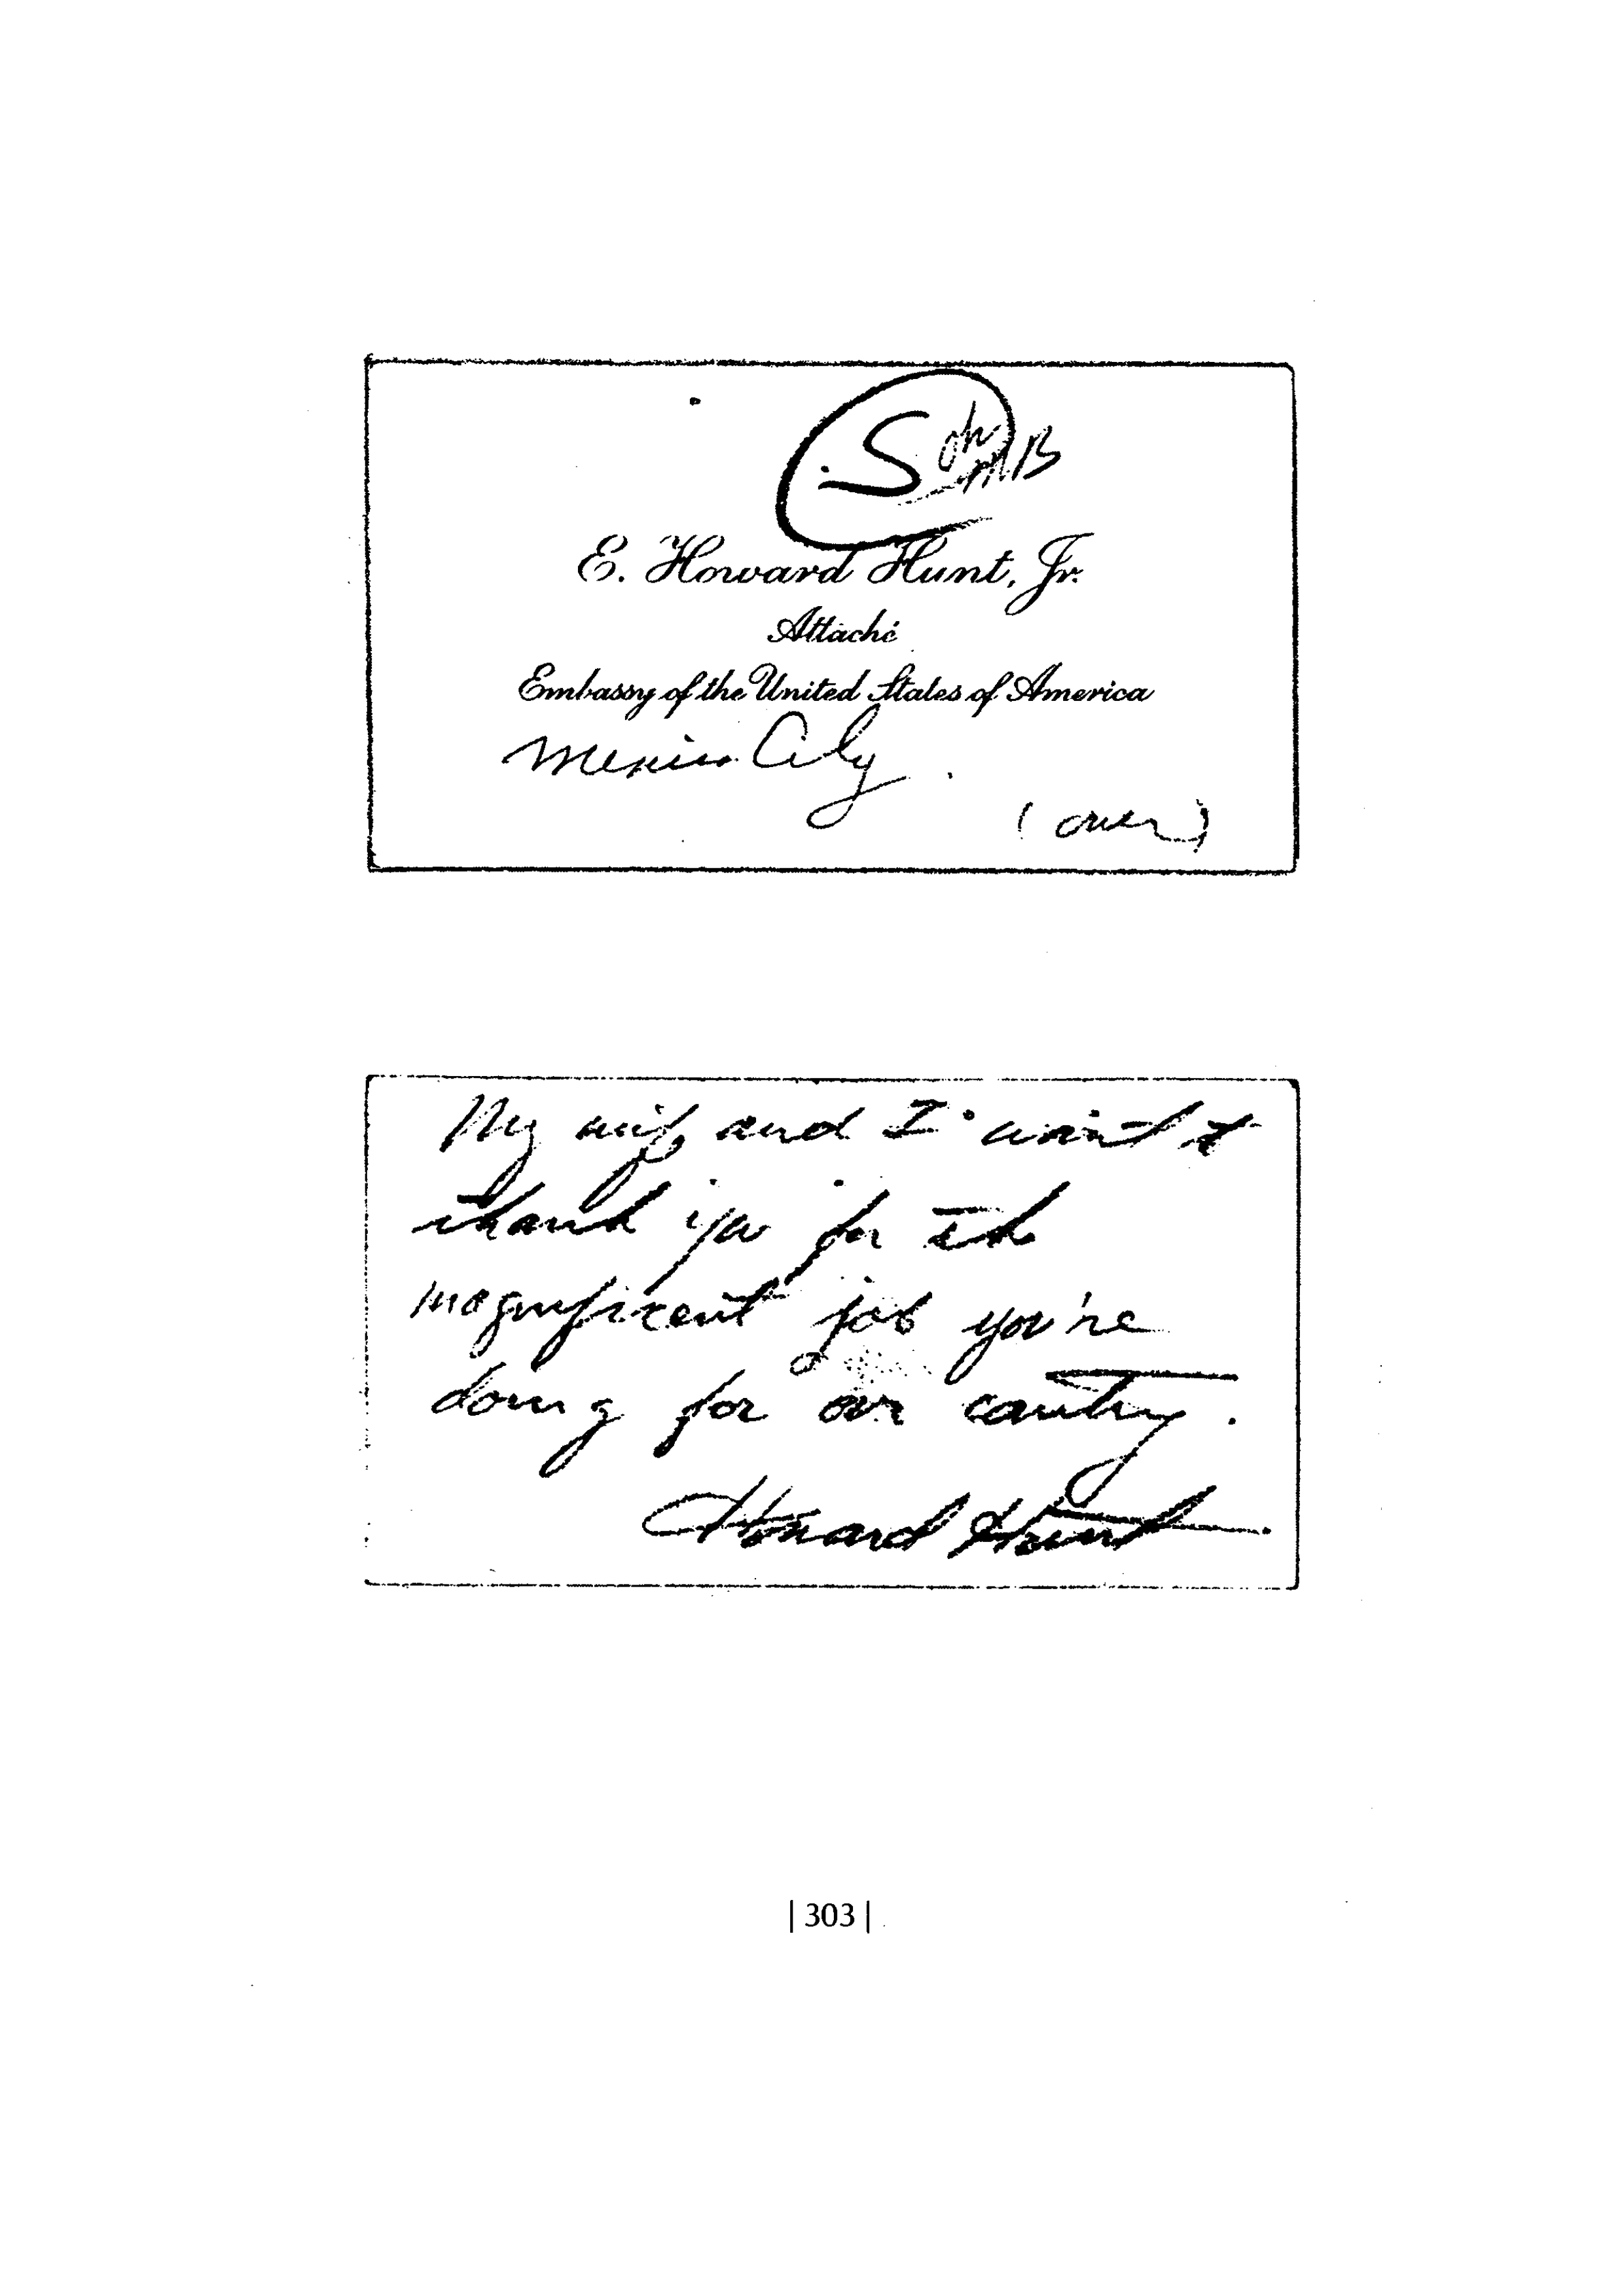 S
E. Howard Hunt, Jr.
Attaché
Embassy of the United States of America
Mexico City
(over)
My wife and I want to
thank you for the
magnificent job you're
doing for our country.
Howard Hunt
| 303 |